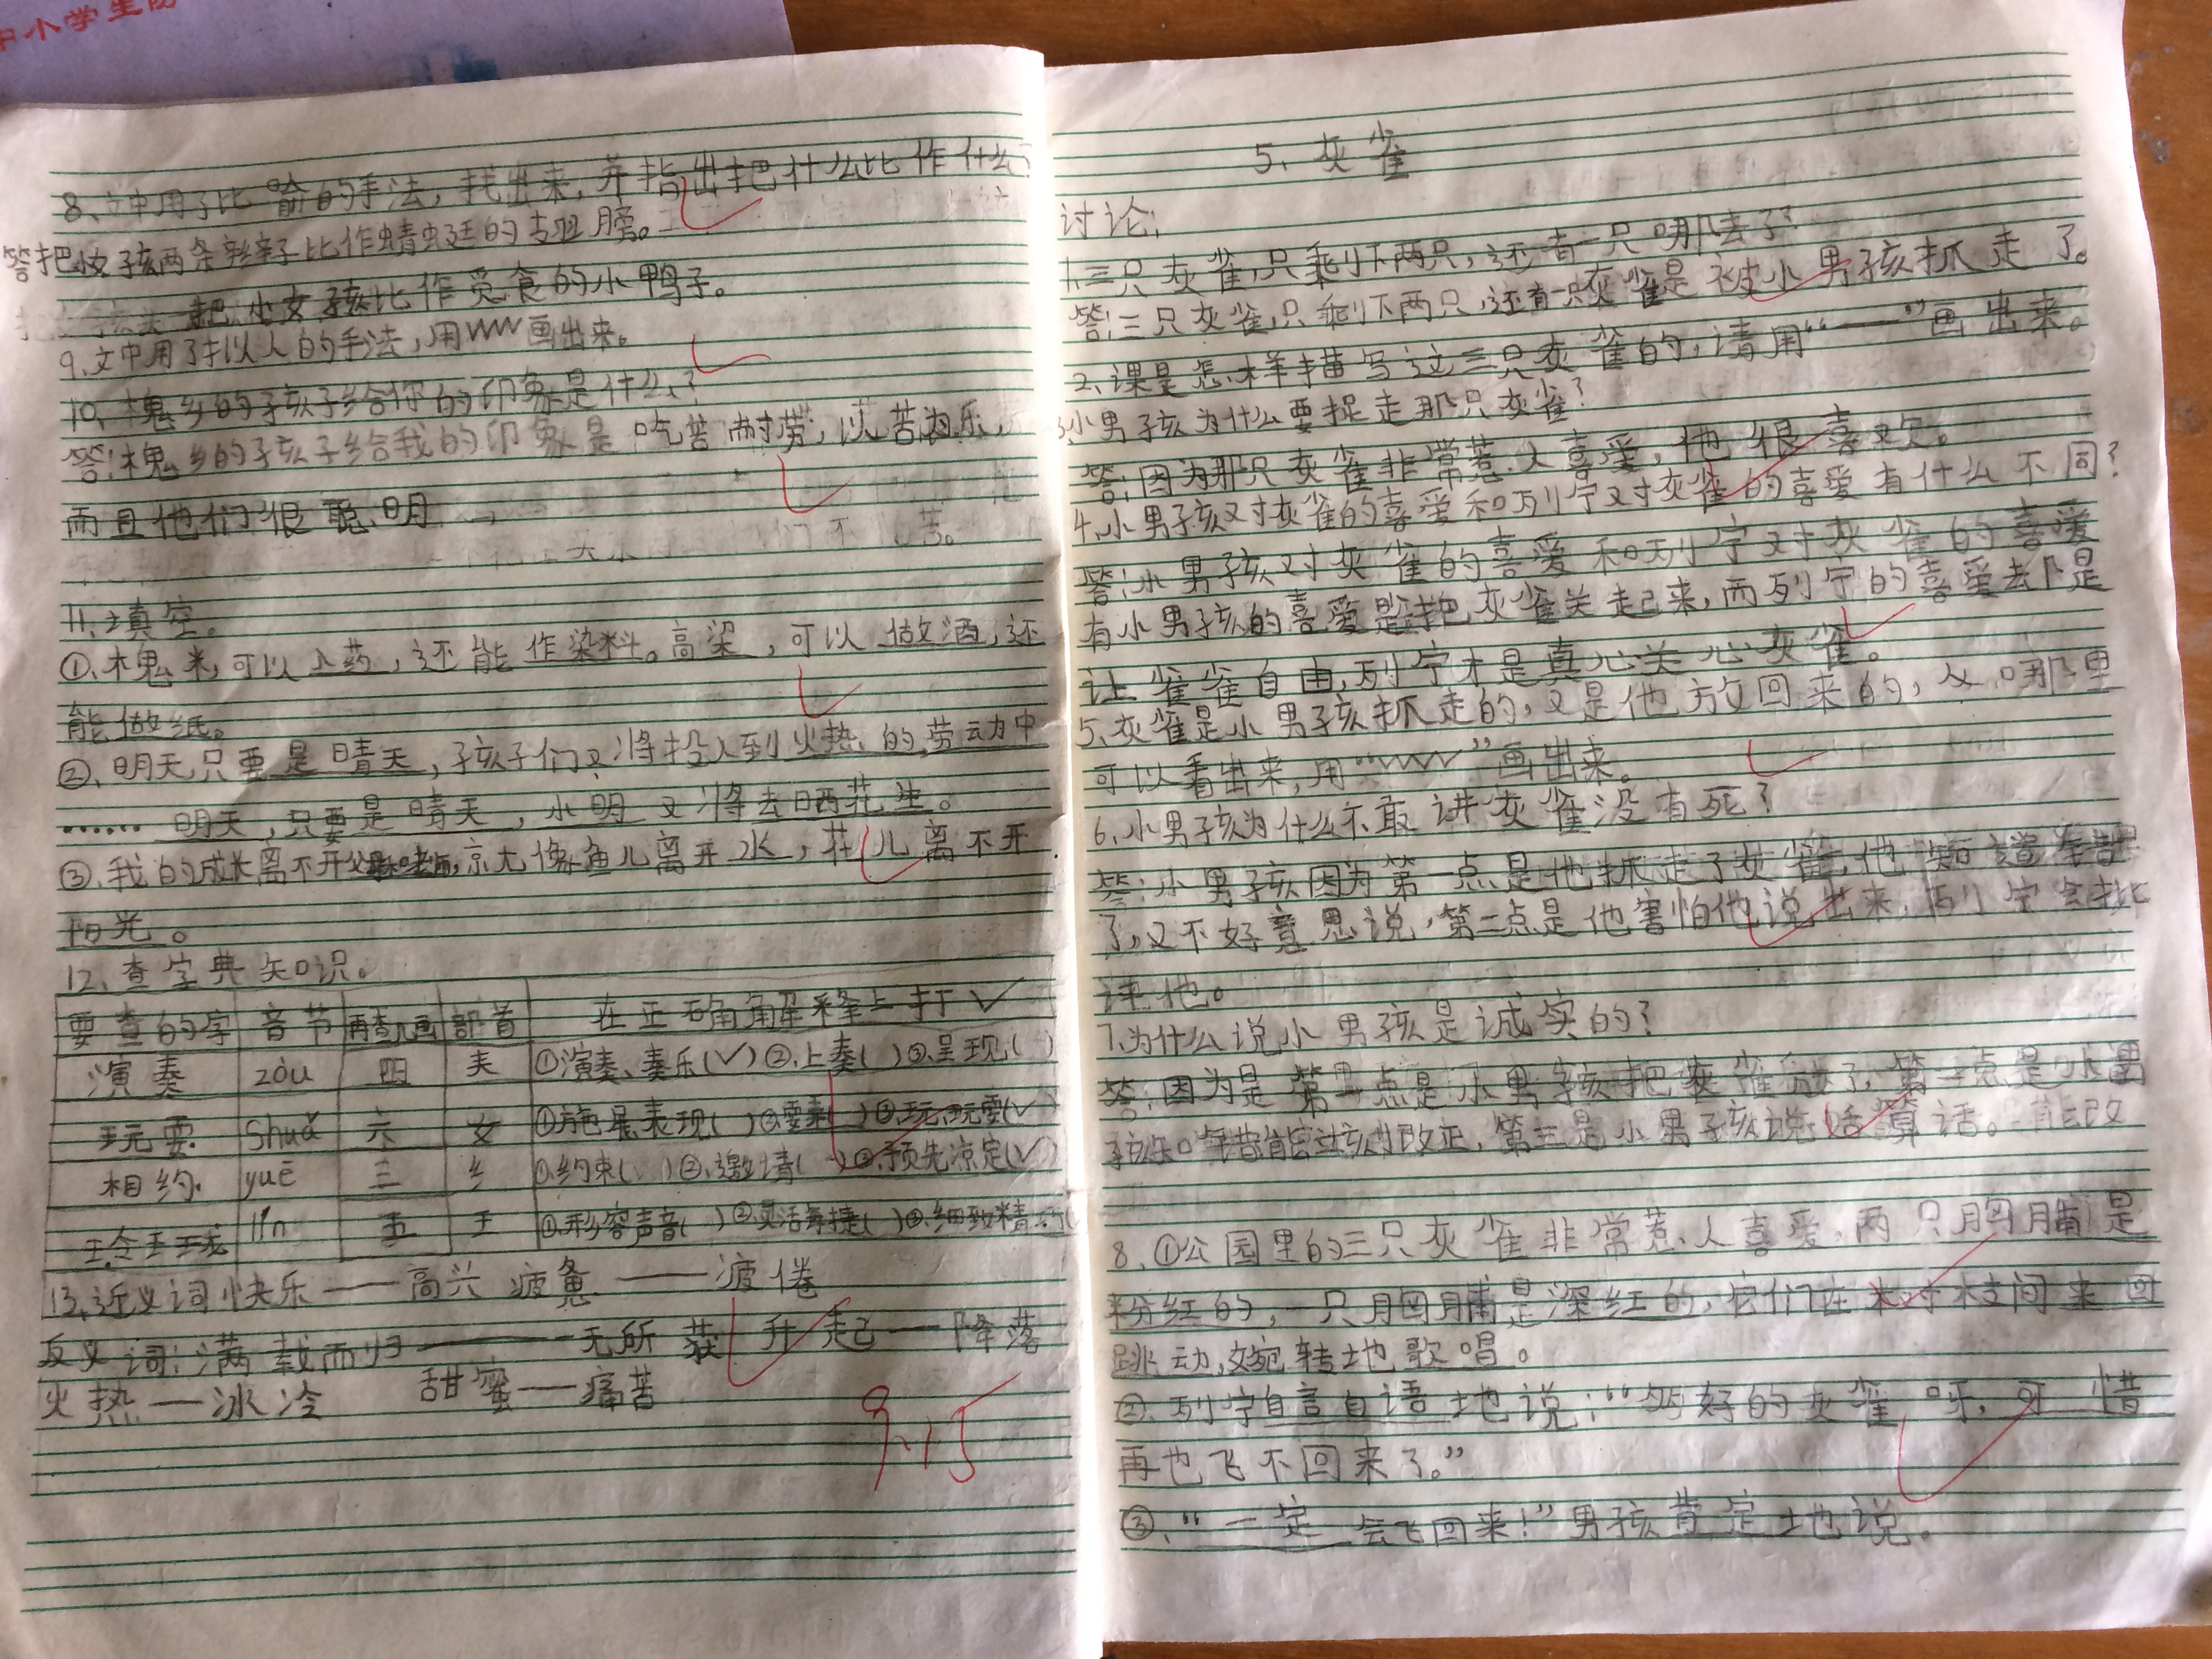 中小学生防
8、文中用了比喻的手法，找出来，并指出把什么比作什么？
答把女孩两条辫子比作蜻蜓的翅膀。
把小女孩比作觅食的小鸭子。
9、文中用了拟人的手法，用﹏﹏画出来。
10、槐乡的孩子给你的印象是什么？
答：槐乡的孩子给我的印象是吃苦耐劳，以苦为乐，
而且他们很聪明
11、填空。
①、槐米，可以入药，还能作染料。高梁，可以做酒，还
能做纸。
②、明天，只要是晴天，孩子们又将投入到火热的劳动中
……明天，只要是晴天，小明又将去晒花生。
③、我的成长离不开父母和老师，京尤像鱼儿离开水，花儿离不开
阳光。
12、查字典知识。
要查的字 音节 再查几画 部首 在正确解释上打√
演奏 zòu 四 夫 ①演奏、奏乐(√)②上奏( )③呈现( )
玩耍 shuǎ 六 女 ①施展、表现( )②耍弄( )③玩、玩耍(√)
相约 yuē 三 纟 ①约束( )②邀请( )③预先凉定(√)
玲珑 lín 五 王 ①形容声音( )②灵活敏捷( )③细致精巧(
13、近义词 快乐——高兴 疲惫——疲倦
反义词：满载而归——无所获 升起——降落
火热——冰冷 甜蜜——痛苦
9.15
5、灰雀
讨论：
1、三只灰雀，只剩下两只，还有一只哪去了？
答：三只灰雀，只剩下两只，还有一只灰雀是被小男孩抓走了。
2、课是怎样描写这三只灰雀的，请用“——”画出来。
3、小男孩为什么要捉走那只灰雀？
答：因为那只灰雀非常惹人喜爱，他很喜欢。
4、小男孩对灰雀的喜爱和列宁对灰雀的喜爱有什么不同？
答：小男孩对灰雀的喜爱和列宁对灰雀的喜爱
有小男孩的喜爱是把灰雀关起来，而列宁的喜爱去卩是
让雀雀自由，列宁才是真心关心灰雀。
5、灰雀是小男孩抓走的，又是他放回来的，从哪里
可以看出来，用“﹏﹏”画出来。
6、小男孩为什么不敢讲灰雀没有死？
答：小男孩因为第一点是他抓走了灰雀，他知道错
了，又不好意思说，第二点是他害怕他说出来，列宁会批
评他。
7、为什么说小男孩是诚实的？
答：因为是第一点是小男孩把灰雀放了，第二点是小男
孩知错能改正，第三是小男孩说话算话。
8、①公园里的三只灰雀非常惹人喜爱，两只胸脯是
粉红的，一只胸脯是深红的，它们在树枝间来回
跳动，婉转地歌唱。
②、列宁自言自语地说：“多好的灰雀呀，可惜
再也飞不回来了。”
③、“一定会飞回来！”男孩肯定地说。